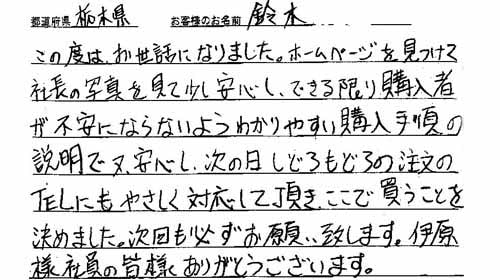 都道府県 栃木県 お客様のお名前 鈴木
この度は、お世話になりました。ホームページを見つけて
社長の写真を見て少し安心し、できる限り購入者
が不安にならないようわかりやすい購入手順の
説明で又、安心し、次の日しどろもどろの注文の
TELにもやさしく対応して頂き、ここで買うことを
決めました。次回も必ずお願い致します。伊原
様、社員の皆様ありがとうございます。